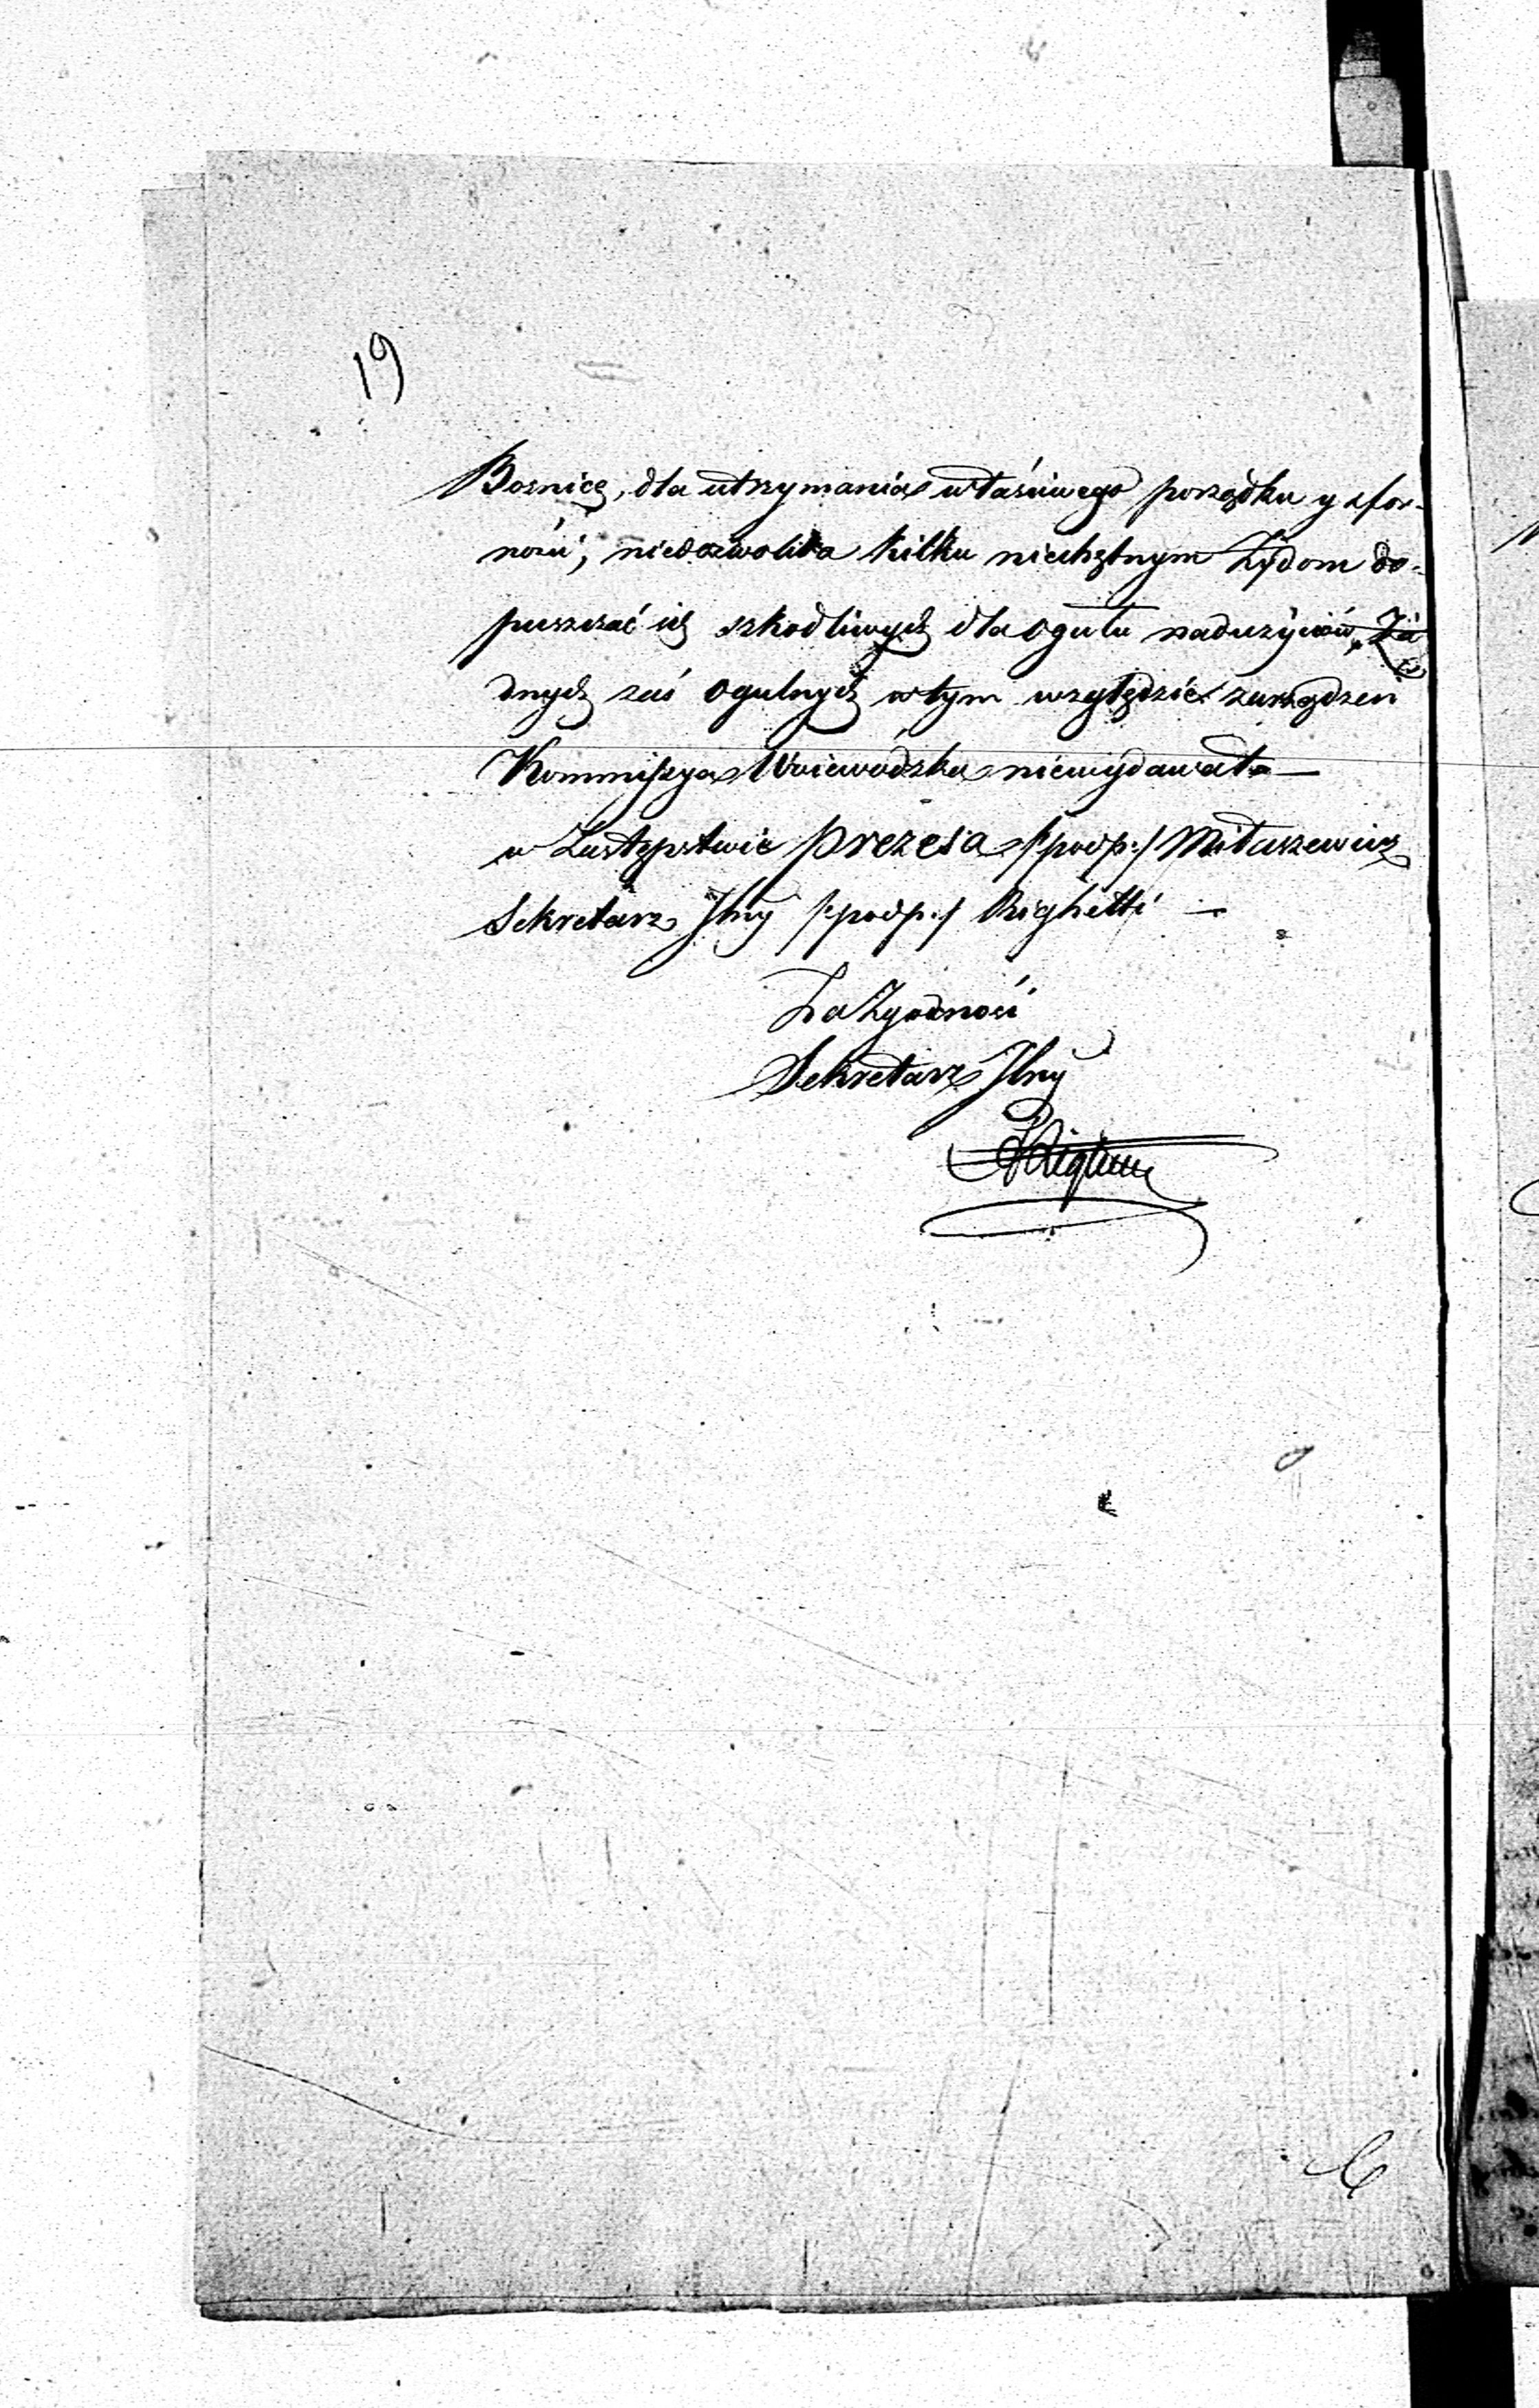 19
Boznicę, dla utrzymania właściwego porządku y sfor-
ności, niedozwoliła kilku niechętnym Żydom do-
puszczać się szkodliwych dla ogułu nadużyciów, Ża
dnych zaś ogulnych w tym względzie zarządzeń
Kommissya Woiewodzka niewydawała —
w Zastępstwie Prezesa /:podp:/ Miłaszewicz
Sekretarz Jlny /:podp:/ Righetti —
Za Zgodność
Sekretarz Jlny
Righetti